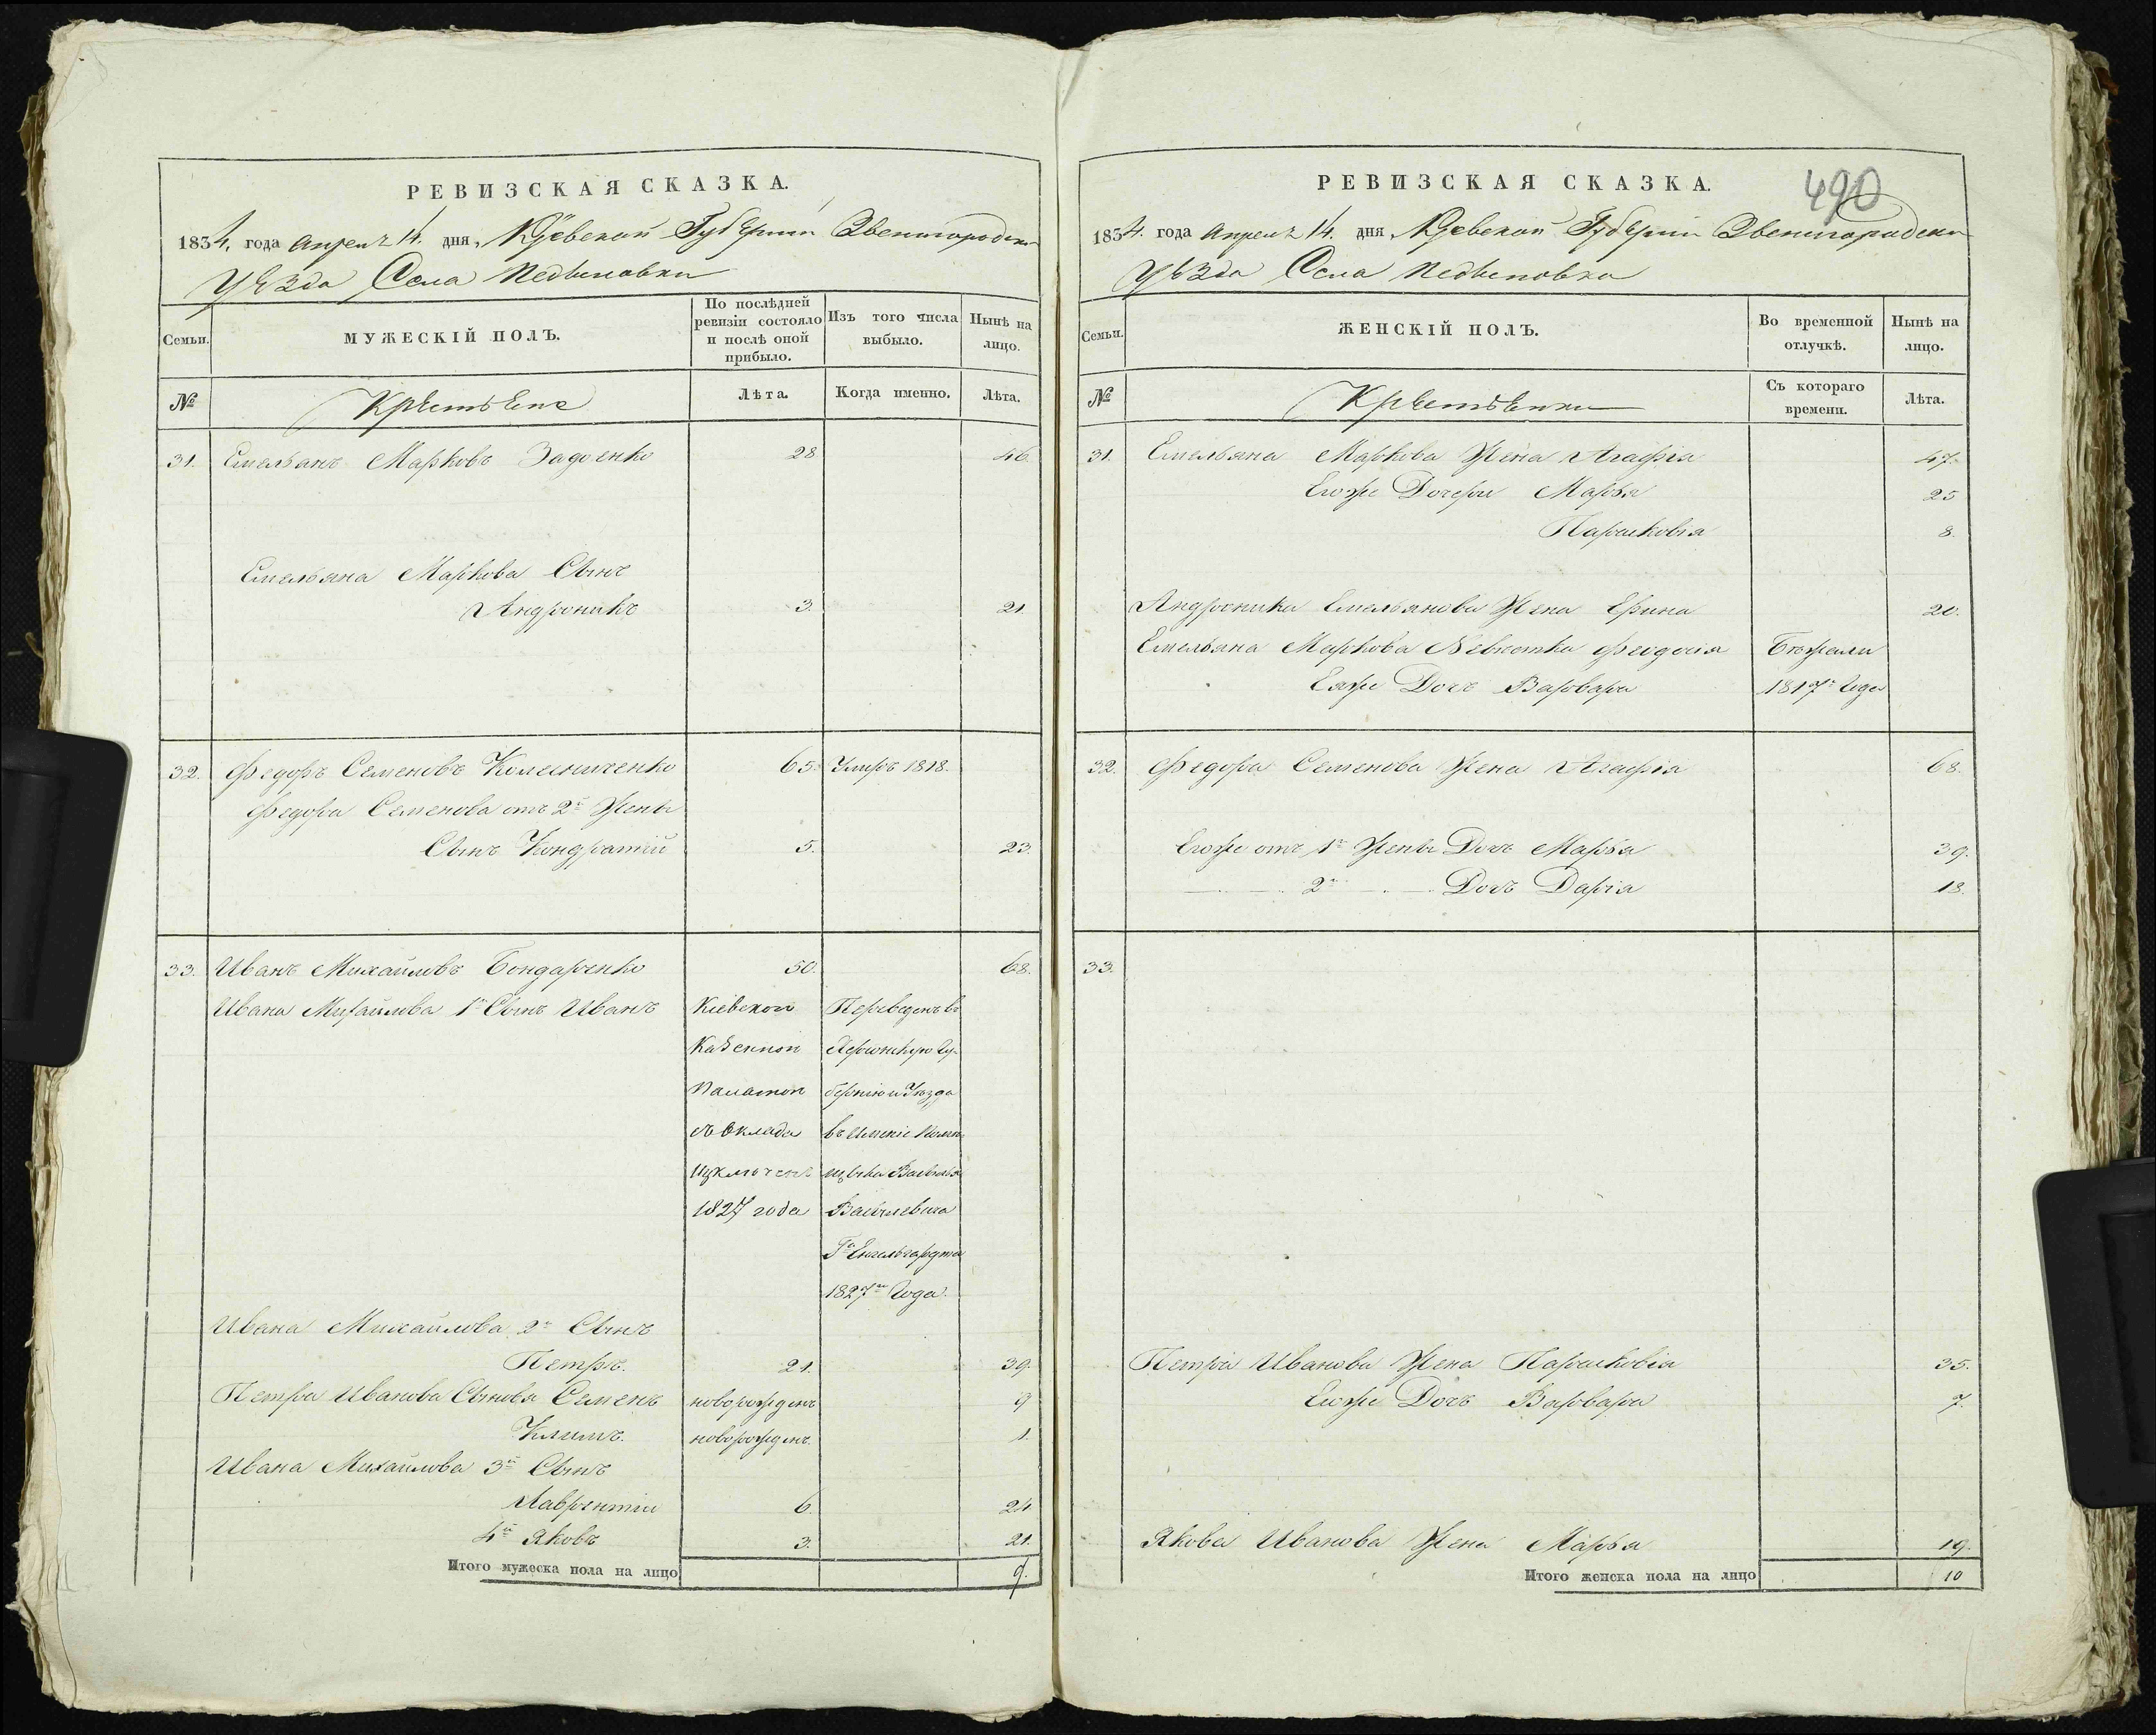 РЕВИЗСКАЯ СКАЗКА.
1834. года апреля 14. дня, Кіевской Губерніи Звенигородска
Уезда Села Пединовки
Семьи.
МУЖЕСКІЙ ПОЛЪ.
По послѣдней ревизіи состояло и послѣ оной прибыло.
Изъ того числа выбыло.
Нынѣ на лицо.
№
Крестьяне
Лѣта.
Когда именно.
Лѣта.
31. Емельянъ Марковъ Задоенко 28 46.
Емельяна Маркова Сынъ
Андроникъ 3. 21.
32. Федоръ Семеновъ Колесниченко 65. Умръ 1818.
Федора Семенова отъ 2й Жены
Сынъ Кондратій 5. 23.
33. Иванъ Михайловъ Бондаренко 50. 68.
Ивана Михайлова 1й Сынъ Иванъ Кіевской Переведенъ въ
Казенной Херсонскую Гу-
Палатой бернію и Уезда
съ Оклада въ Именіе Поме-
Изключенъ щыка Василья
1827 года Васильевича
Га Енгельгардта
1827го Года.
Ивана Михайлова 2й Сынъ
Петръ. 21. 39.
Петра Иванова Сыновья Семенъ новорожденъ 9
Климъ. новорожденъ. 1.
Ивана Михайлова 3й Сынъ
Лаврентій 6. 24
4й Яковъ 3. 21.
Итого мужеска пола на лицо 9.
РЕВИЗСКАЯ СКАЗКА.
490
1834. года апреля 14. дня Кіевской Губерніи Звенигородска
Уезда Села Пединовка
Семьи.
ЖЕНСКІЙ ПОЛЪ.
Во временной отлучкѣ.
Нынѣ на лицо.
№
Крестьянки
Съ котораго времени.
Лѣта.
31. Емельяна Маркова Жена Агафія 47.
Егоже Дочери Марья 25
Парасковія 8.
Андроника Емельянова Жена Ерина 20.
Емельяна Маркова Невестка Феодосія Бежали
Еяже Дочъ Варвара 1817го Года
32. Федора Семенова Жена Агафія 68.
Егоже отъ 1й Жены Дочъ Марья 39.
2й Дочъ Дарія 18.
33.
Петра Иванова Жена Парасковія 35.
Егоже Дочъ Варвара 7.
Якова Иванова Жена Марья 19.
Итого женска пола на лицо 10